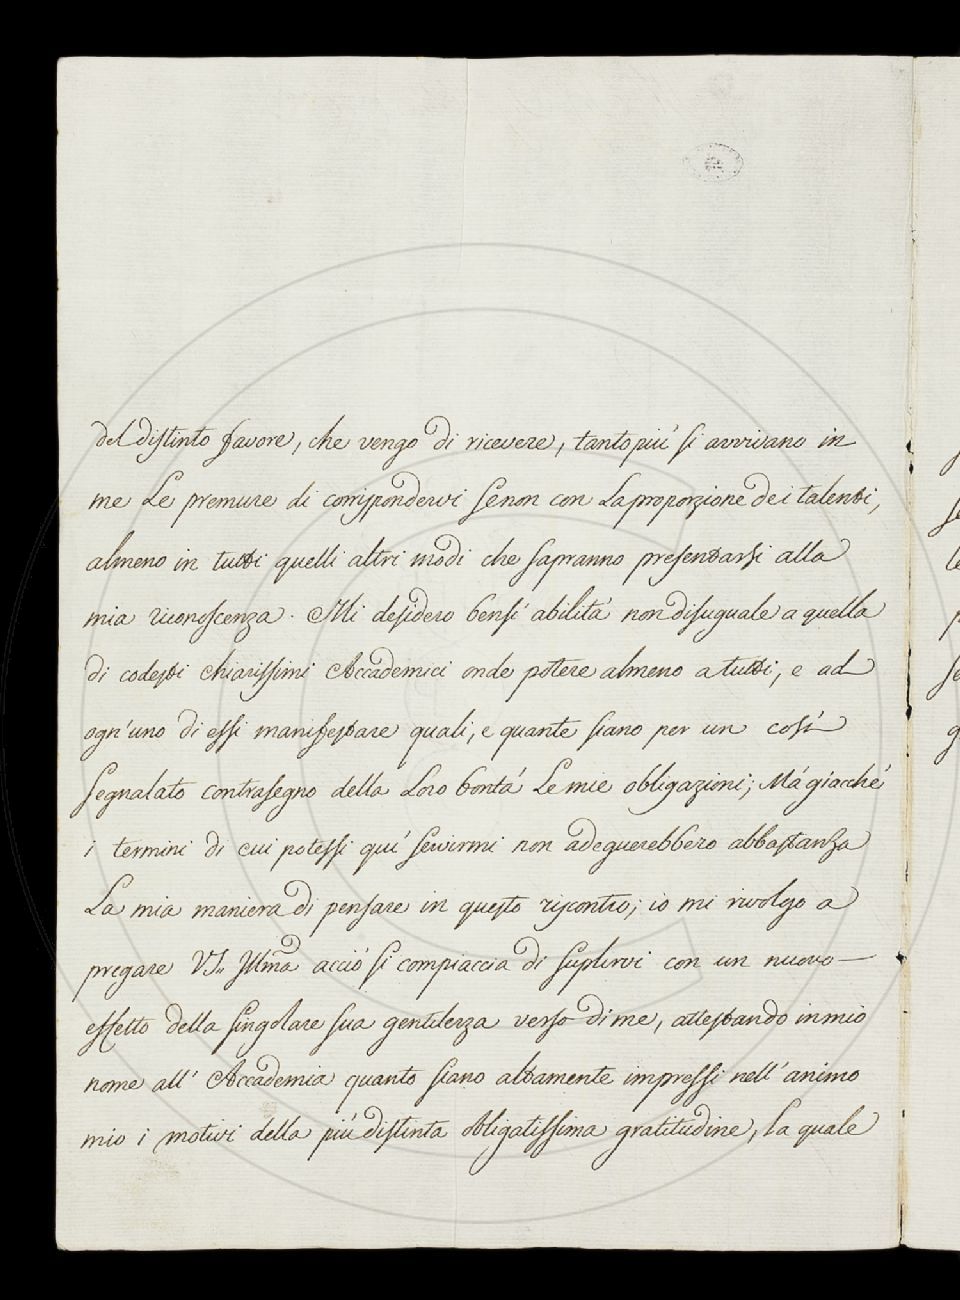 del distinto favore, che vengo di ricevere, tanto più si avvivano in
me Le premure di corrispondervi Se non con La proporzione dei talenti,
almeno in tutti quelli altri modi che sapranno presentarsi alla
mia riconoscenza. Mi desidero bensì abilità non disuguale a quella
di codesti chiarissimi Accademici onde potere almeno a tutti, e ad
ogn'uno di essi manifestare quali, e quante siano per un così
segnalato contrasegno della Loro bontà Le mie obligazioni; Mà giacchè
i termini di cui potessi quì servirmi non adeguerebbero abbastanza
La mia maniera di pensare in questo riscontro; io mi rivolgo a
pregare VS. Illma acciò si compiaccia di suplirvi con un nuovo
effetto della singolare sua gentilezza verso di me, attestando in mio
nome all' Accademia quanto siano altamente impressi nell' animo
mio i motivi della più distinta obligatissima gratitudine, la quale